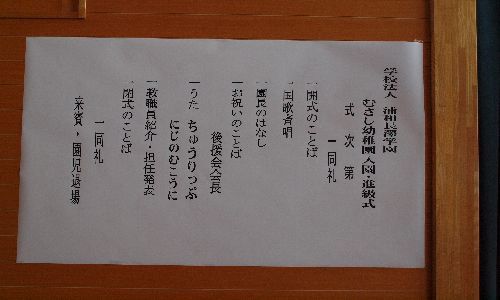 学校法人　浦和長澤学園
むさし幼稚園入園・進級式
式　次　第
一同礼
一開式のことば
一国歌斉唱
一園長のはなし
一お祝いのことば
後援会会長
一うた　ちゅうりっぷ
にじのむこうに
一教職員紹介・担任発表
一閉式のことば
一同礼
来賓・園児退場